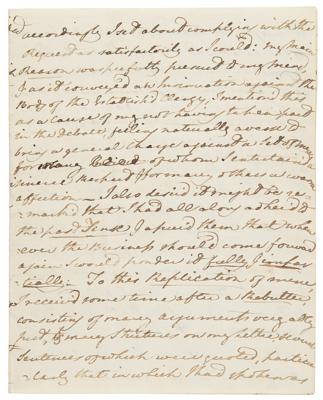 accordingly I set about complying with the
Request as satisfactorily as I could: my main
Reason was perfectly presumed & my mien
I as it conveyed an Insinuation against the
Body of the Establish'd Clergy, I mentioned this
as a cause of my not having taken a part
in the debate, feeling naturally averse to
bring a general Charge against a Set of men
for many of whom I entertained a
sincere & for many others a warm
affection — I also desired it might be re-
mark'd that I had all along adhered to
the past Tense & assured them that when
ever the Business should come forward
again I would ponder it fully & impar
tially. — To this Replication of mine
I received some time after a Rebutter
consisting of many arguments very ably
put, & many Strictures on my letter, several
Sentences of which were quoted, particu
larly that in which I had spoken as